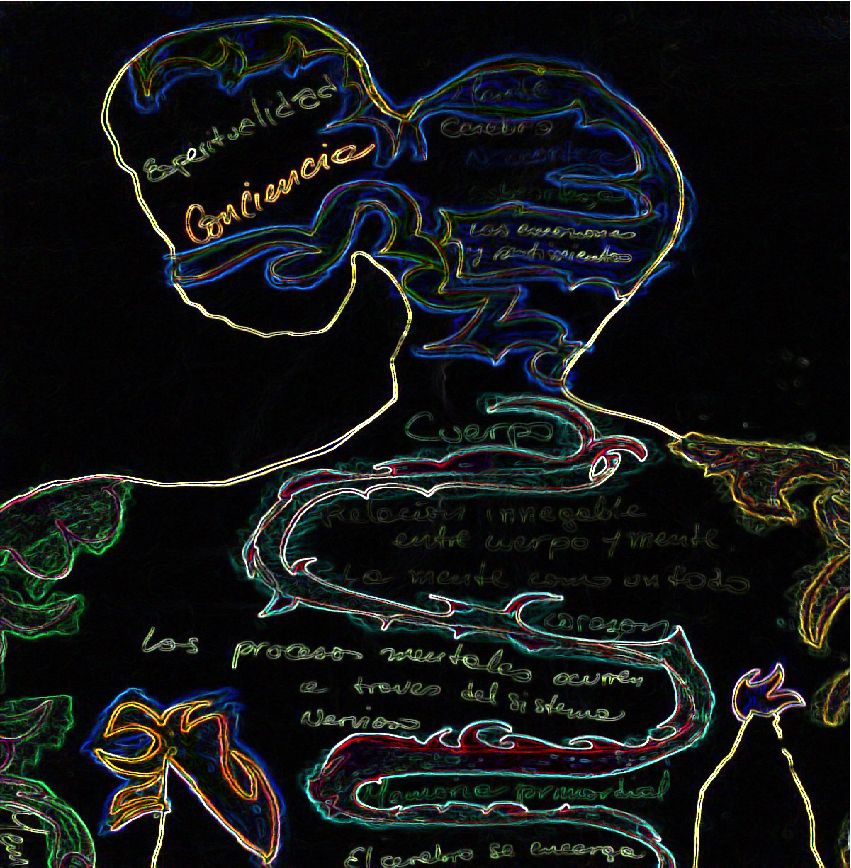 Espiritualidad
Conciencia
Mente
Cerebro
Neocorteza
Las emociones
y sentimientos
Cuerpo
Relación innegable
entre cuerpo y mente.
La mente como un todo
Corason
Los procesos mentales ocurren
a traves del sistema
Nervioso
Memoria primordial
El cerebro se encarga